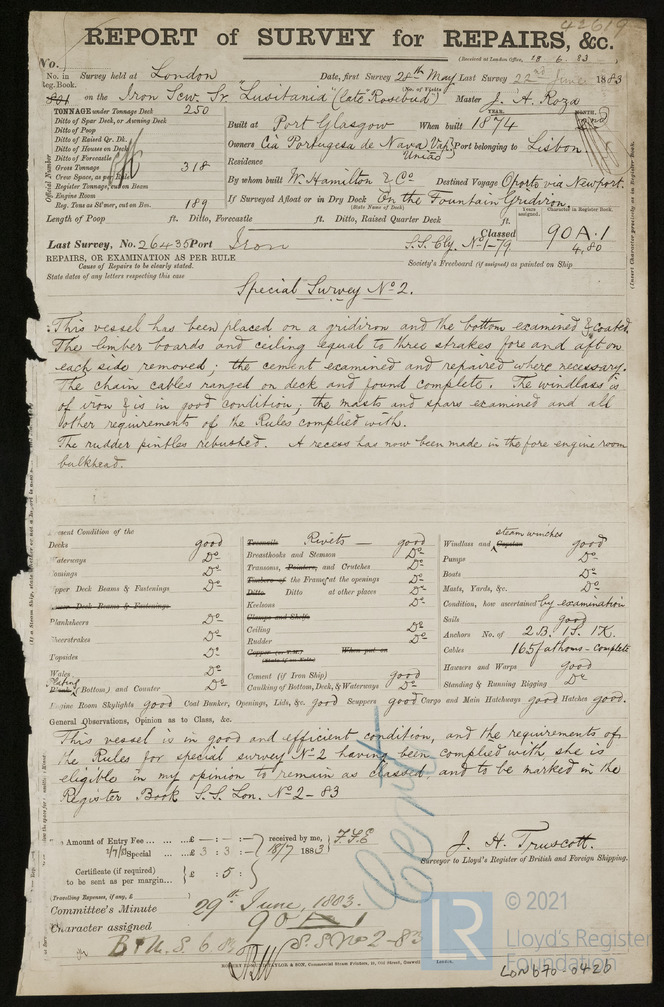 42619
REPORT of SURVEY for REPAIRS, &c.
(Received at London Office, 18. 6. 83)
No.
No. in Reg. Book. Survey held at London Date, first Survey 25th May Last Survey 22nd June 1883
(No. of Visits)
on the Iron Scw. Sr. "Lusitania" (late Rosebud) Master J. A. Roza
TONNAGE under Tonnage Deck 250
Ditto of Spar Deck, or Awning Deck
Ditto of Poop
Ditto of Raised Qr. Dk.
Ditto of Houses on Deck
Ditto of Forecastle
Gross Tonnage 318
Crew Space, as per
Register Tonnage, cut on Beam
Engine Room
Reg. Tons as St'mer, cut on Bm. 189
Official Number
YEAR. MONTH.
Built at Port Glasgow When built 1874
Owners Cia Portugesa de Nava Vapr Port belonging to Lisbon
Residence United
By whom built W. Hamilton & Co Destined Voyage Oporto via Newport.
If Surveyed Afloat or in Dry Dock On the Fountain Gridiron
(State Name of Dock)
Length of Poop ft. Ditto, Forecastle ft. Ditto, Raised Quarter Deck ft.
Years assigned. Character in Register Book.
Classed 90 A.1
4,80
Last Survey, No. 26435 Port Iron S.S. Cly. No 1-79
REPAIRS, OR EXAMINATION AS PER RULE
Society's Freeboard (if assigned) as painted on Ship
Cause of Repairs to be clearly stated.
State dates of any letters respecting this case
Special Survey No 2.
This vessel has been placed on a gridiron and the bottom examined & coated.
The limber boards and ceiling equal to three strakes fore and aft on
each side removed; the cement examined and repaired where necessary.
The chain cables ranged on deck and found complete. The windlass is
of iron & is in good condition; the masts and spars examined and all
other requirements of the Rules complied with.
The rudder pintles rebushed. A recess has now been made in the fore engine room
bulkhead.
Present Condition of the
Decks good
Waterways Do
Comings Do
Upper Deck Beams & Fastenings Do
Lower Deck Beams & Fastenings
Planksheers Do
Sheerstrakes Do
Topsides Do
Wales Do
Plating
Plank (Bottom) and Counter Do
Treenails Rivets — good
Breasthooks and Stemson Do
Transoms, Pointers, and Crutches Do
Timbers of the Frames at the openings Do
Ditto Ditto at other places Do
Keelsons Do
Clamps and Shelfs
Ceiling Do
Rudder Do
Copper (or Y.M.) When put on
(State if on Felt)
Cement (if Iron Ship) good
Caulking of Bottom, Deck, & Waterways Do
steam winches
Windlass and Capstan good
Pumps Do
Boats Do
Masts, Yards, &c. Do
Condition, how ascertained by examination
Sails good
Anchors No. of 2 B. 1 S. 1 K.
Cables 165 fathoms - complete
Hawsers and Warps good
Standing & Running Rigging Do
Engine Room Skylights good Coal Bunker, Openings, Lids, &c. good Scuppers good Cargo and Main Hatchways good Hatches good.
General Observations, Opinion as to Class, &c.
This vessel is in good and efficient condition, and the requirements of
the Rules for special survey No 2 having been complied with she is
eligible in my opinion to remain as classed and to be marked in the
Register Book S.S. Lon. No 2-83
Cert
Amount of Entry Fee ... £ : - : - received by me, F.S.E
2/7/83 Special ... £ 3 : 3 : - 18/7 1883
Certificate (if required) £ : 5 :
to be sent as per margin...
(Travelling Expenses, if any, £
J. H. Truscott.
Surveyor to Lloyd's Register of British and Foreign Shipping.
Committee's Minute 29th June, 1883.
Character assigned 90 A 1
S.S. No 2-83
© 2021
LR
Lloyd's Register
Foundation
LON670-0426